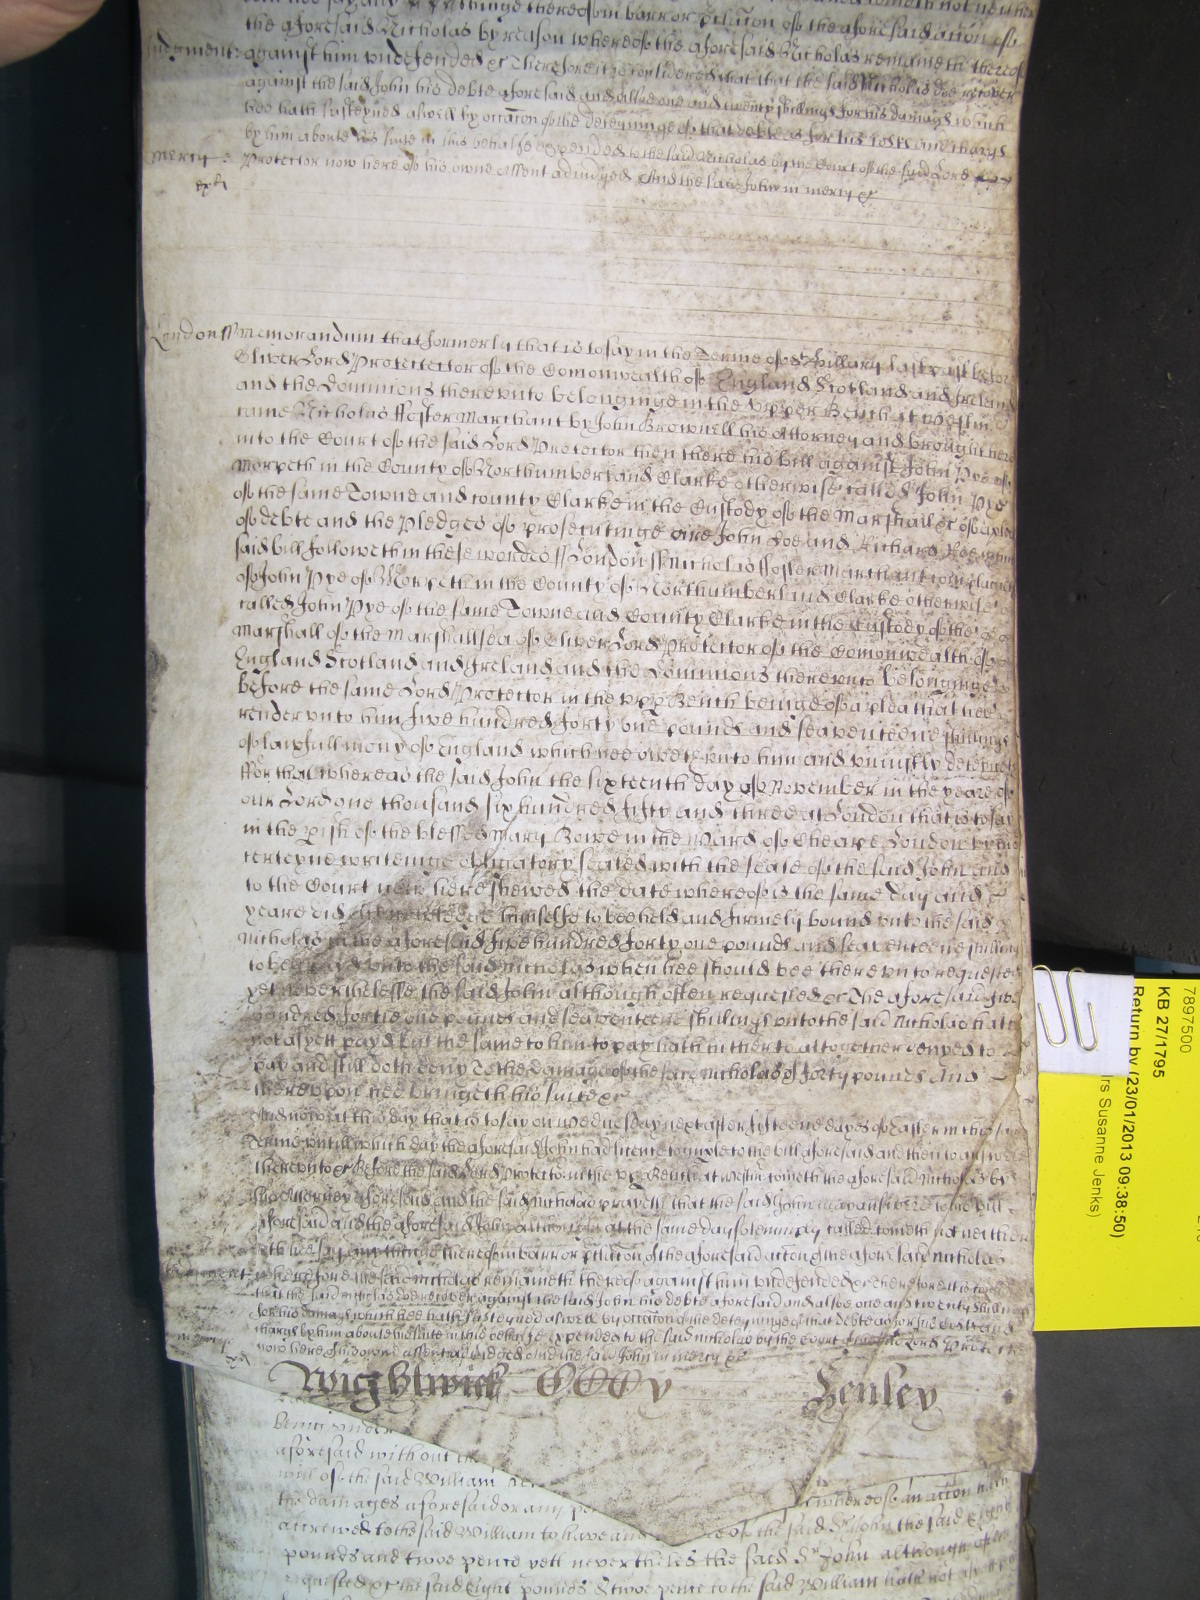 the aforesaid Nicholas by reason whereof the aforesaid Nicholas remaineth thereof
Judgment: against him undefended &c Therefore it is considered that that the said Nicholas doe recover
against the said John his debte aforesaid and alsoe one and twenty shillings for his damages which
hee hath susteyned aswell by occacon of the deteyninge of that debte as for his costs and charges
by him aboute his suite in this behalfe expended to the said Nicholas by the Court of the said Lord
Mercy: Protector now here of his owne assent adiudged And the said John in mercy &c
London ss Memorandum that formerly that is to say in the Terme of St Hillary last past before
Oliver Lord Protector of the Comonwealth of England Scotland and Ireland
and the Dominions thereunto belonginge in the Upper Bench at Westm
came Nicholas ffoster Marchant by John Brownell his Attorney and brought here
into the Court of the said Lord Protector then there his bill against John Pye of
Morpeth in the County of Northumberland Clarke otherwise called John Pye
of the same Towne and county Clarke in the Custody of the Marshall &c of a plea
of debte and the Pledges of prosecutinge are John Doe and Richard Roe which
said bill followeth in these wordes ss London ss Nicholas ffoster Marchant complaineth
of John Pye of Morpeth in the County of Northumberland Clarke otherwise
called John Pye of the same Towne and County Clarke in the Custody of the
Marshall of the Marshallsea of Oliver Lord Protector of the Comonwealth of
England Scotland and Ireland and the Dominions thereunto belonginge
before the same Lord Protector in the upp Bench beinge of a plea that hee
render unto him five hundred forty one pounds and seaventeene shillings
of lawfull mony of England which hee oweth unto him and uniustly deteyneth
ffor that whereas the said John the sixteenth day of November in the yeare of
our Lord one thousand six hundred fifty and three at London that is to say
in the pish of the blessed Mary Bowe in the Ward of Cheape London by his
certeyne writeinge obligatory sealed with the seale of the said John and
to the Court now here shewed the date whereof is the same day and
yeare did acknowledge himselfe to bee held and firmely bound unto the said
Nicholas in the aforesaid five hundred forty one pounds and seaventeene shillings
to bee payd unto the said Nicholas when hee should bee thereunto requested
yet neverthelesse the said John although often requested &c The aforesaid five
hundred fortie one pounds and seaventeene shillings unto the said Nicholas hath
not as yett payd but the same to him to pay hath hitherto altogether denyed
pay and still doth deny To the damage of the said Nicholas of forty pounds And
thereupon hee bringeth his suite &c
And now at this day that is to say on Wednesday next after fifteene dayes of Easter in this same
Terme untill which day the aforesaid John had licence to imple to the bill aforesaid and then to answere
thereunto &c Before the said Lord Protector in the upp Bench at Westm cometh the aforesaid Nicholas by
his Attorney aforesaid and the said Nicholas prayeth that the said John may answere to the bill
aforesaid and the aforesaid John although at the same day solemnly called cometh not neither
doth hee say any thinge thereof in barr or pclucon of the aforesaid accon of the aforesaid Nicholas
Judgment: wherefore the said Nicholas remaineth thereof against him undefended &c Therefore it is considered
that the said Nicholas doe recover against the said John his debte aforesaid and alsoe one and twenty shillings
for his damages which hee hath susteyned aswell by occacon of the deteyninge of that debte as for his costs and
charges by him aboute his suite in this behalfe expended to the said Nicholas by the Court of the said Lord Protector
now here of his owne assent adiudged And the said John in mercy &c
Wightwick CCCv Henley
Being under
aforesaid without
will of the said William
the damages aforesaid or any
whereof an accon
accrewed to the said William to have and
of the said Sr John the said Eight
pounds and twoe pence yett neverthelesse the said Sr John although often
requested &c the said Eight pounds & twoe pence to the said William hath not as yett
7897500
KB 27/1795
Return by (23/01/2013 09:38:50)
rs Susanne Jenks)